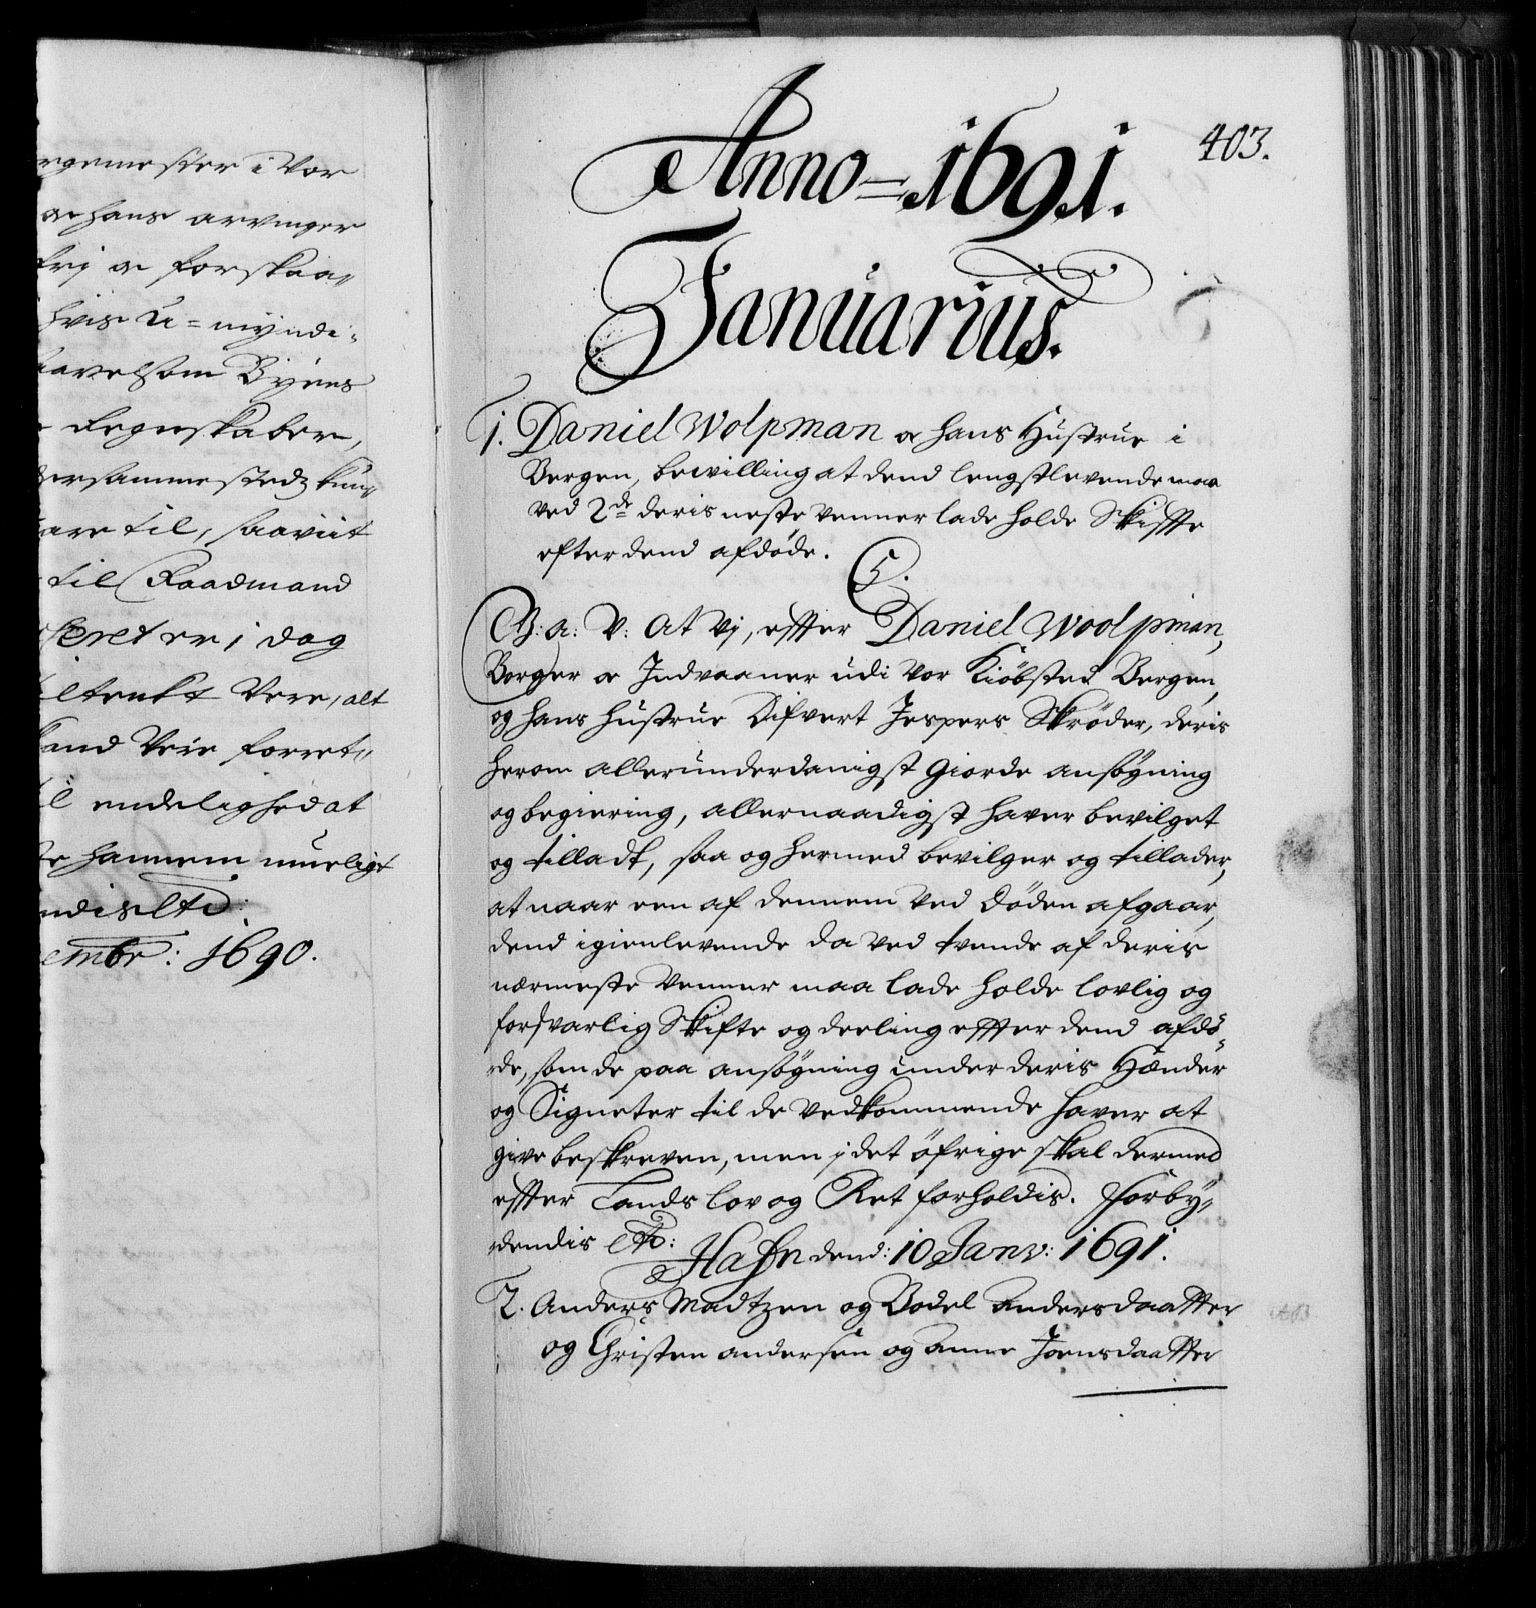 rgemester i Vor
oc hans arvinger
frj oc forskaa„
hvis U=myndi„
som Byens
Regnskaber,
dersammestedz kun„
are til, saaviit
til Raadmand
seret er i dag
iltenkt Vere, alt
Veie forret„
endelighed at
hannem muelige
ndis etc:
embr: 1690.
403.
Anno=1691.
Januarius.
1. Daniel Wolpman oc hans Hustrue i
Bergen, bewilling at dend lengstlevende maa
ved 2de deris neste venner lade holde Skiffte
efter dend afdøde.
C5.
G: a: V: At Vj, effter Daniel Woolpman,
Borger oc Indvaaner udi Vor Kiöbsted Bergen,
og hans hustrue Difvert Jespers Skrøder, deris
herom allerunderdanigst giorde ansögning
og begiering, allernaadigst haver bevilget
og tilladt, saa og hermed bevilger og tillader,
at naar een af dennem ved Døden afgaar,
dend igienlevende da ved tvende af deris
nærmeste Venner maa lade holde lovlig og
forsvarlig Skifte og deeling effter dend afdö„
de, som de paa ansögning under deris Hænder
og Signeter til de vedkommende haver at
give beskreven, men j det öfrige skal dermed
effter Lands lov og Ret forholdis. Forby„
dendis etc: Hafn dend: 10 Janv: 1691.
2. Anders Madtzen og Bodel Andersdaatter
og Christen andersen og anne Joensdaatter